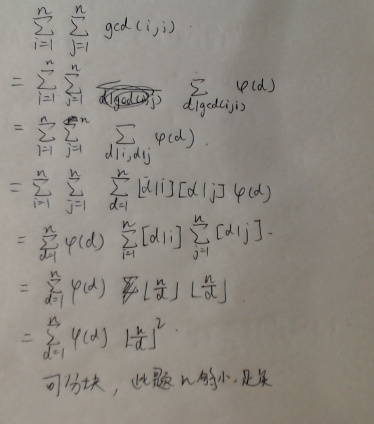 ∑_{i=1}^{n} ∑_{j=1}^{n} gcd(i,j).
= ∑_{i=1}^{n} ∑_{j=1}^{n} ∑_{d|gcd(i,j)} φ(d)
= ∑_{i=1}^{n} ∑_{j=1}^{n} ∑_{d|i,d|j} φ(d).
= ∑_{i=1}^{n} ∑_{j=1}^{n} ∑_{d=1}^{n} [d|i][d|j] φ(d)
= ∑_{d=1}^{n} φ(d) ∑_{i=1}^{n} [d|i] ∑_{j=1}^{n} [d|j].
= ∑_{d=1}^{n} φ(d) ⌊n/d⌋ ⌊n/d⌋
= ∑_{d=1}^{n} φ(d) ⌊n/d⌋².
可分块，此题n够小，